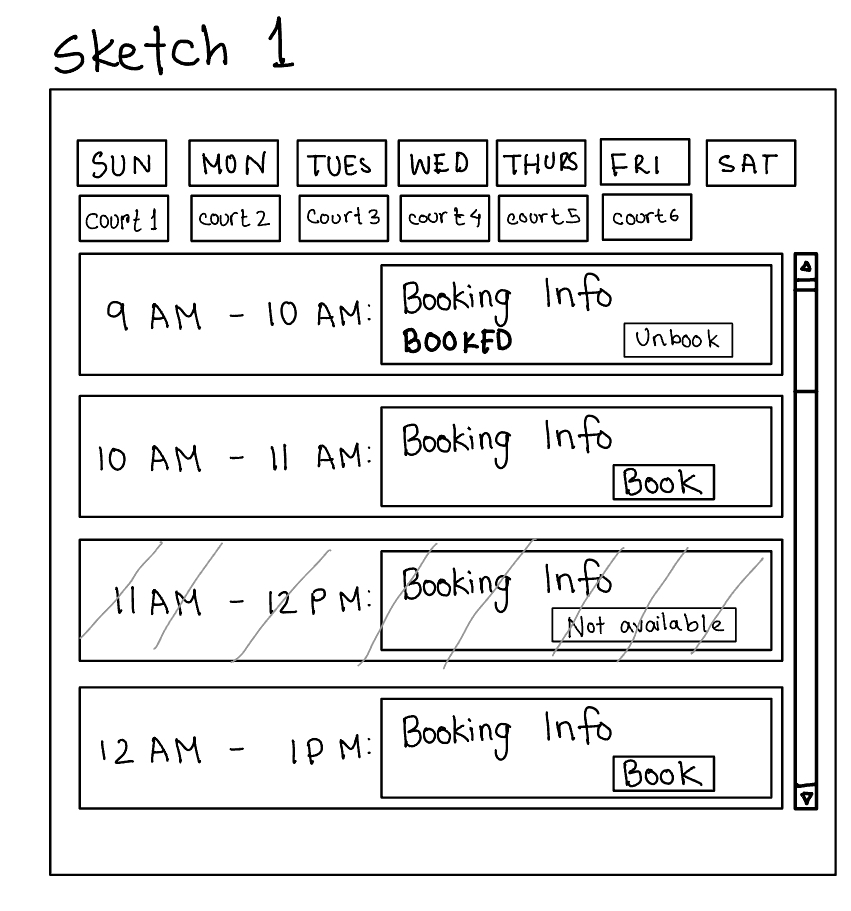 Sketch 1
SUN MON TUES WED THURS FRI SAT
Court 1 Court 2 Court 3 Court 4 Court 5 Court 6
9 AM - 10 AM: Booking Info
BOOKED Unbook
10 AM - 11 AM: Booking Info
Book
11 AM - 12 PM: Booking Info
Not available
12 AM - 1 PM: Booking Info
Book